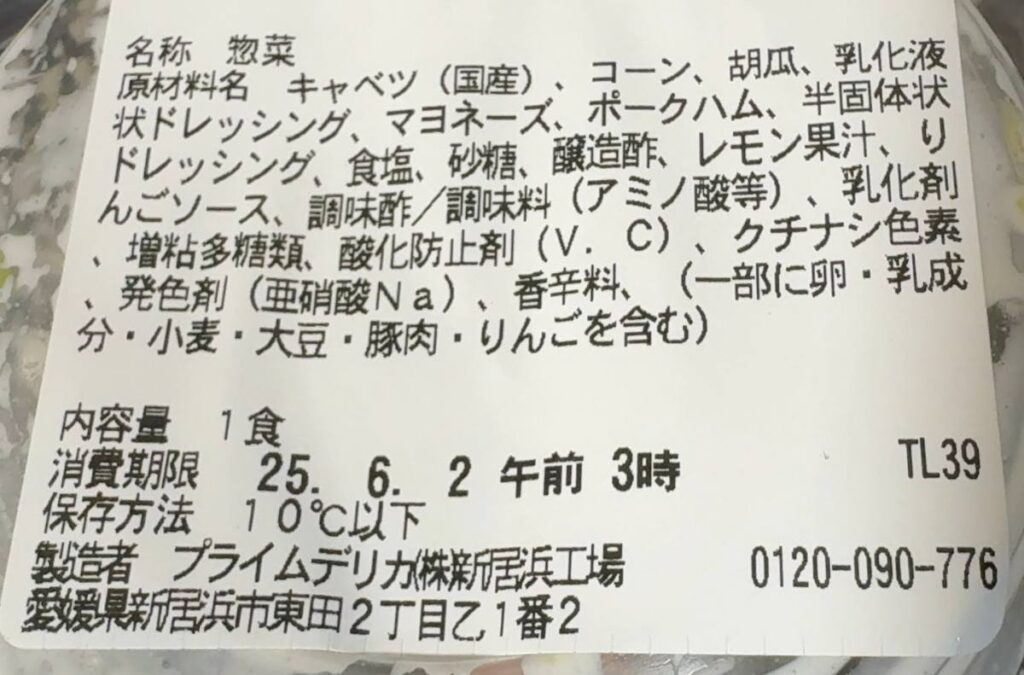 名称　惣菜
原材料名　キャベツ（国産）、コーン、胡瓜、乳化液
状ドレッシング、マヨネーズ、ポークハム、半固体状
ドレッシング、食塩、砂糖、醸造酢、レモン果汁、り
んごソース、調味酢／調味料（アミノ酸等）、乳化剤
、増粘多糖類、酸化防止剤（Ｖ．Ｃ）、クチナシ色素
、発色剤（亜硝酸Ｎａ）、香辛料、（一部に卵・乳成
分・小麦・大豆・豚肉・りんごを含む）
内容量　１食
消費期限　25. 6. 2 午前 3時　TL39
保存方法　１０℃以下
製造者　プライムデリカ㈱新居浜工場　0120-090-776
愛媛県新居浜市東田２丁目乙１番２